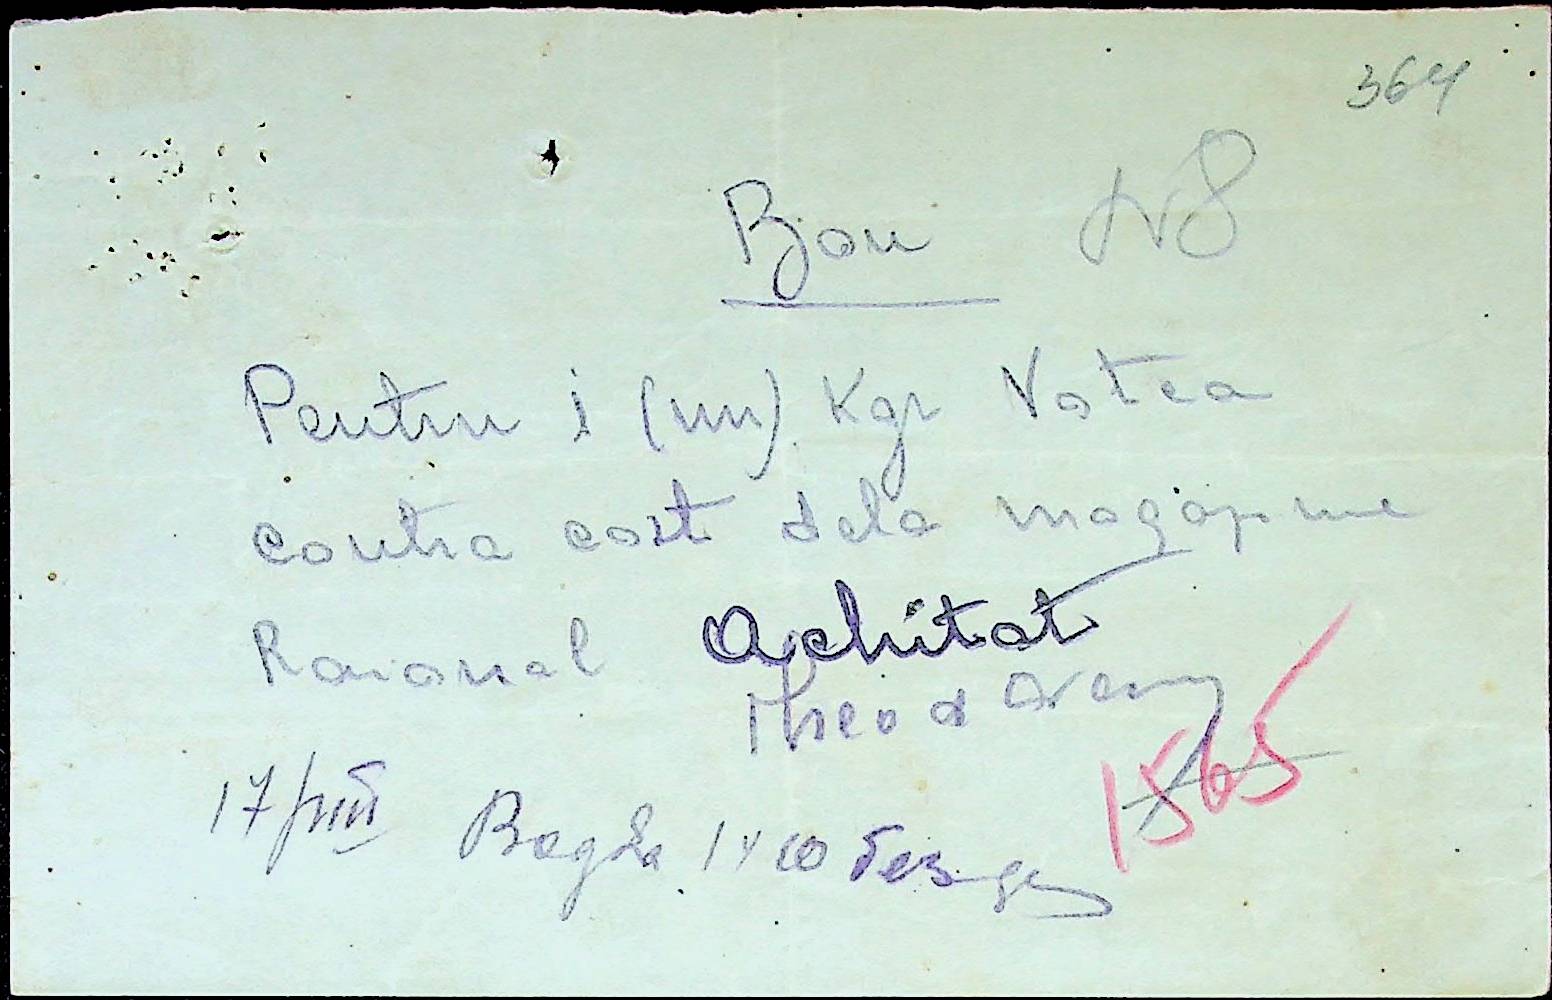 364
Bon N8
Pentru 1 (un) Kgr Votca
contra cost dela magazine
Raional Achitat
Theod
1565
17/VIII